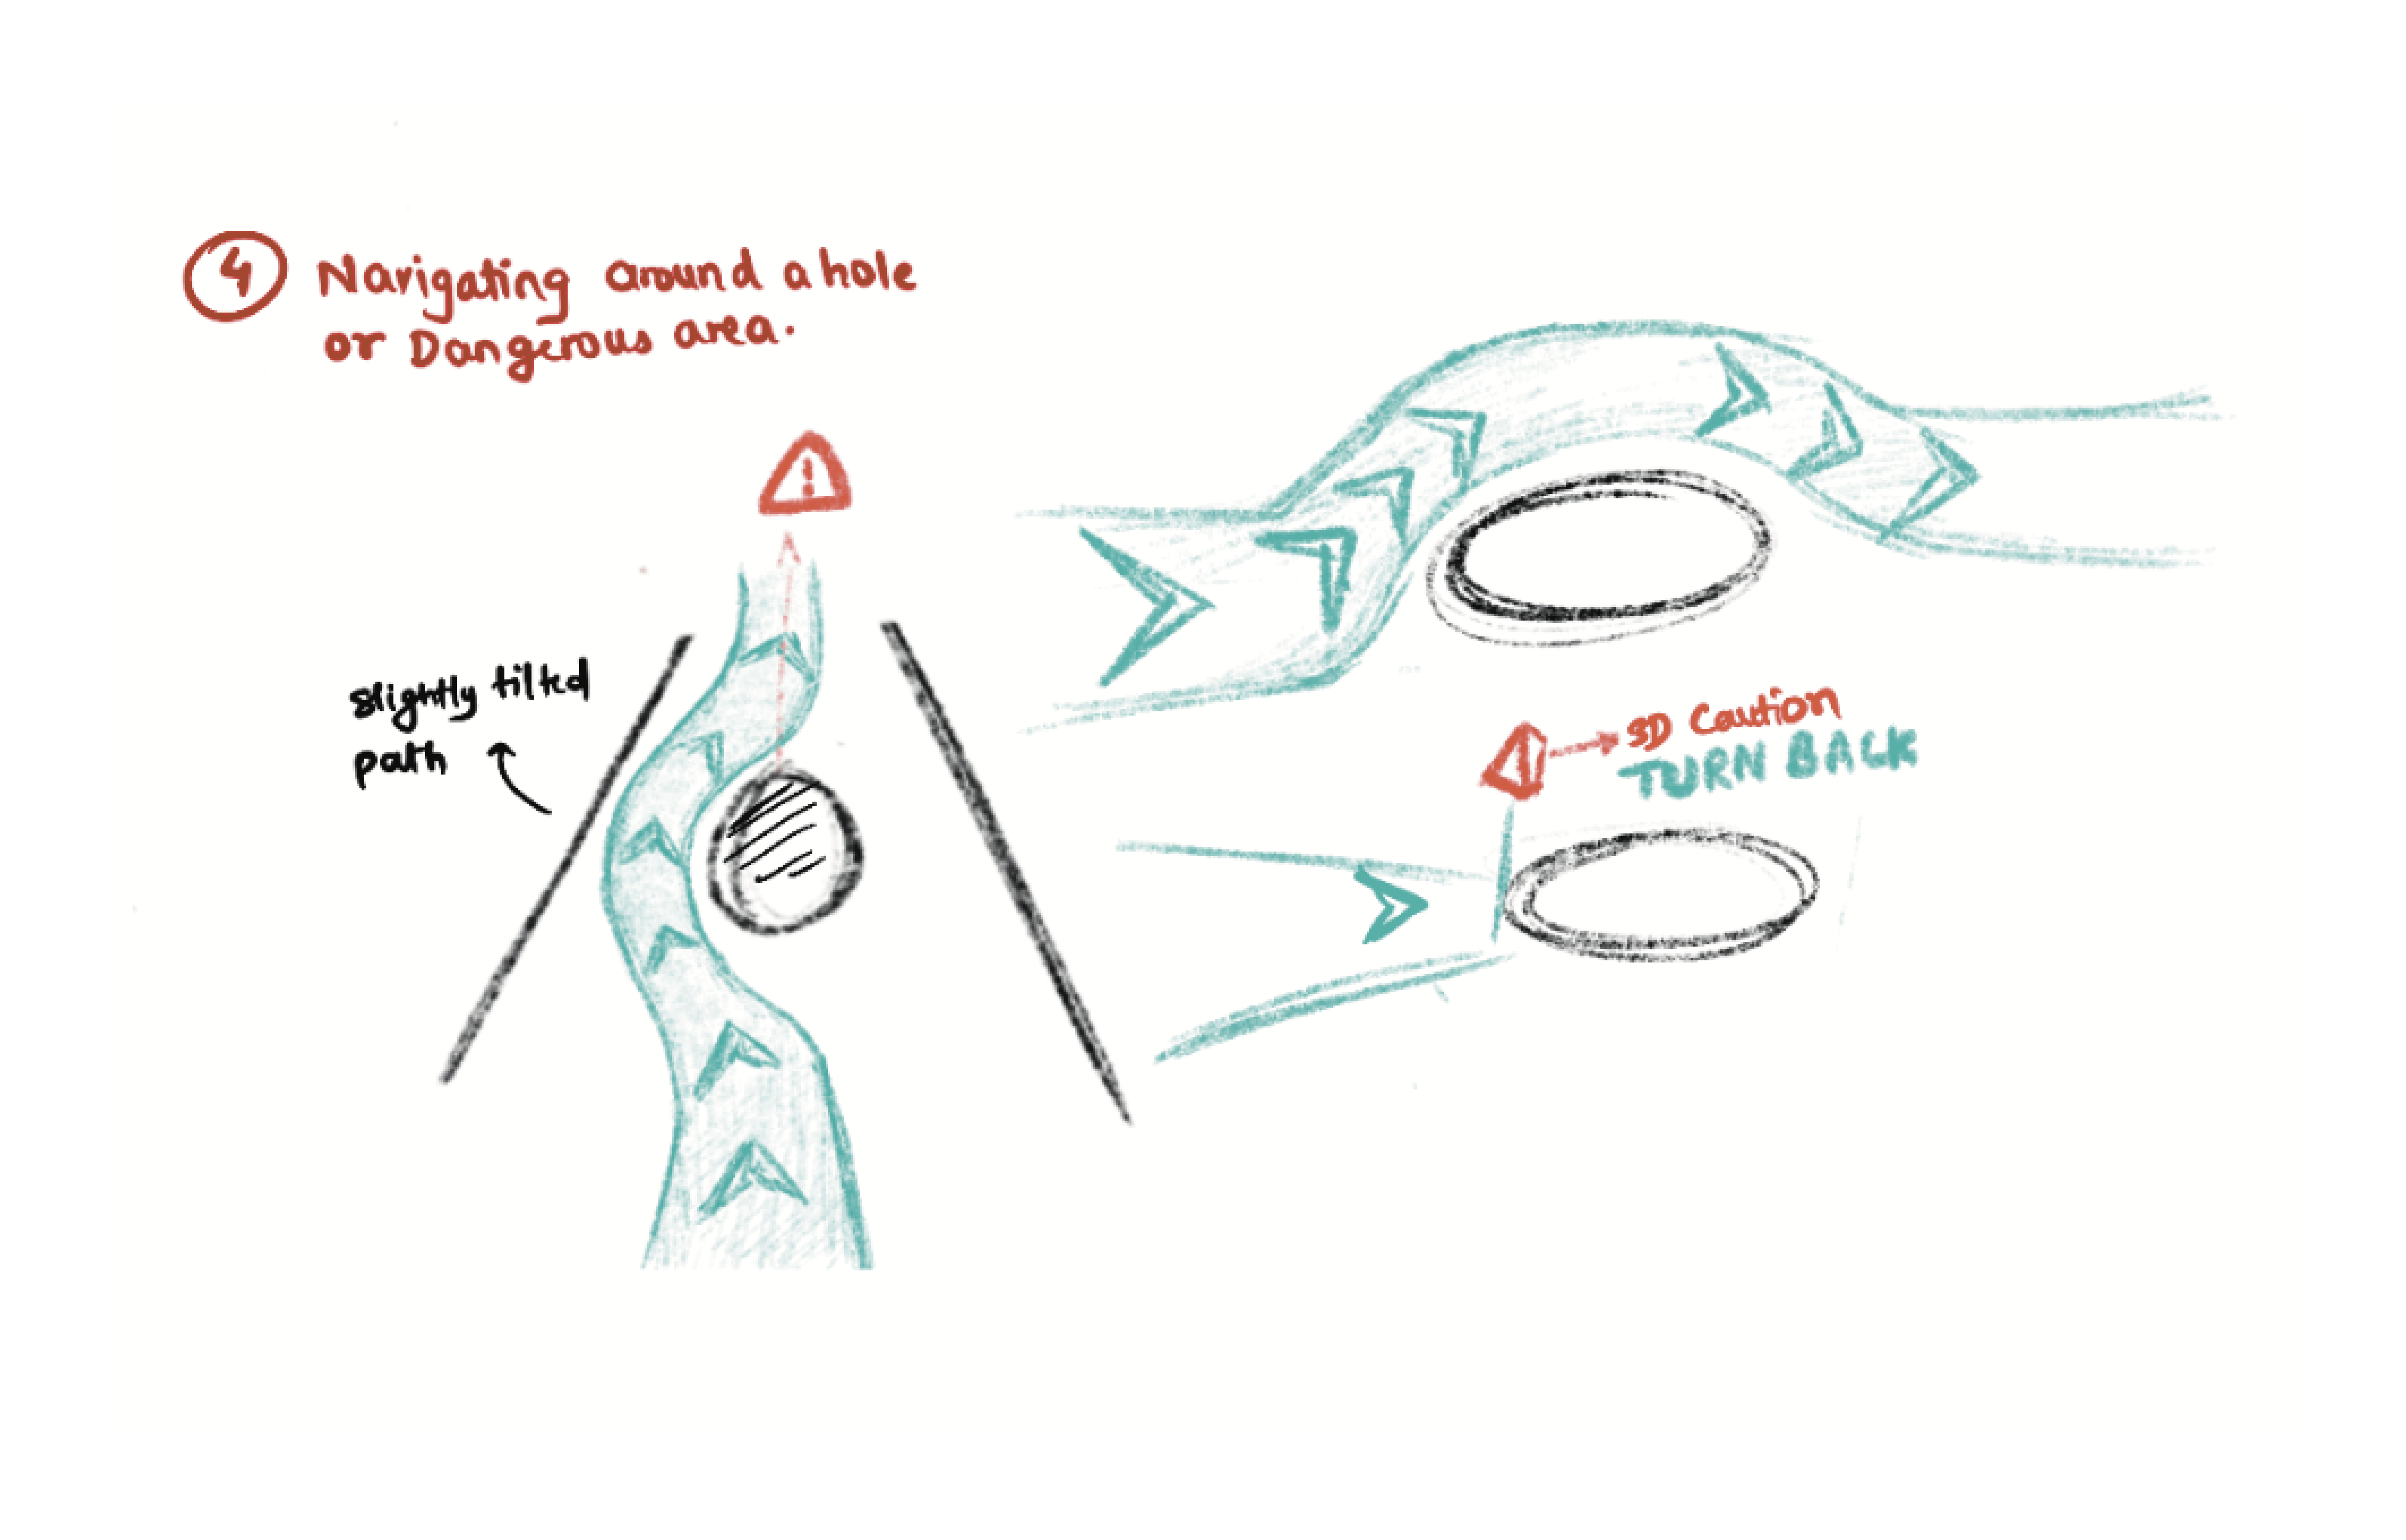 4 Navigating around a hole
or Dangerous area.
!
slightly tilted
path
3D Caution
TURN BACK